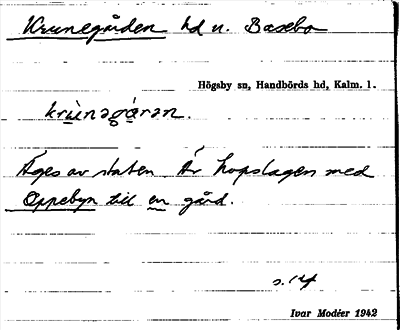 Krunegården hd u. Basebo
Högsby sn, Handbörds hd, Kalm. l.
krùnəgáran.
Äges av staten. Är hopslagen med
Oppebyn till en gård.
s. 14
Ivar Modéer 1942